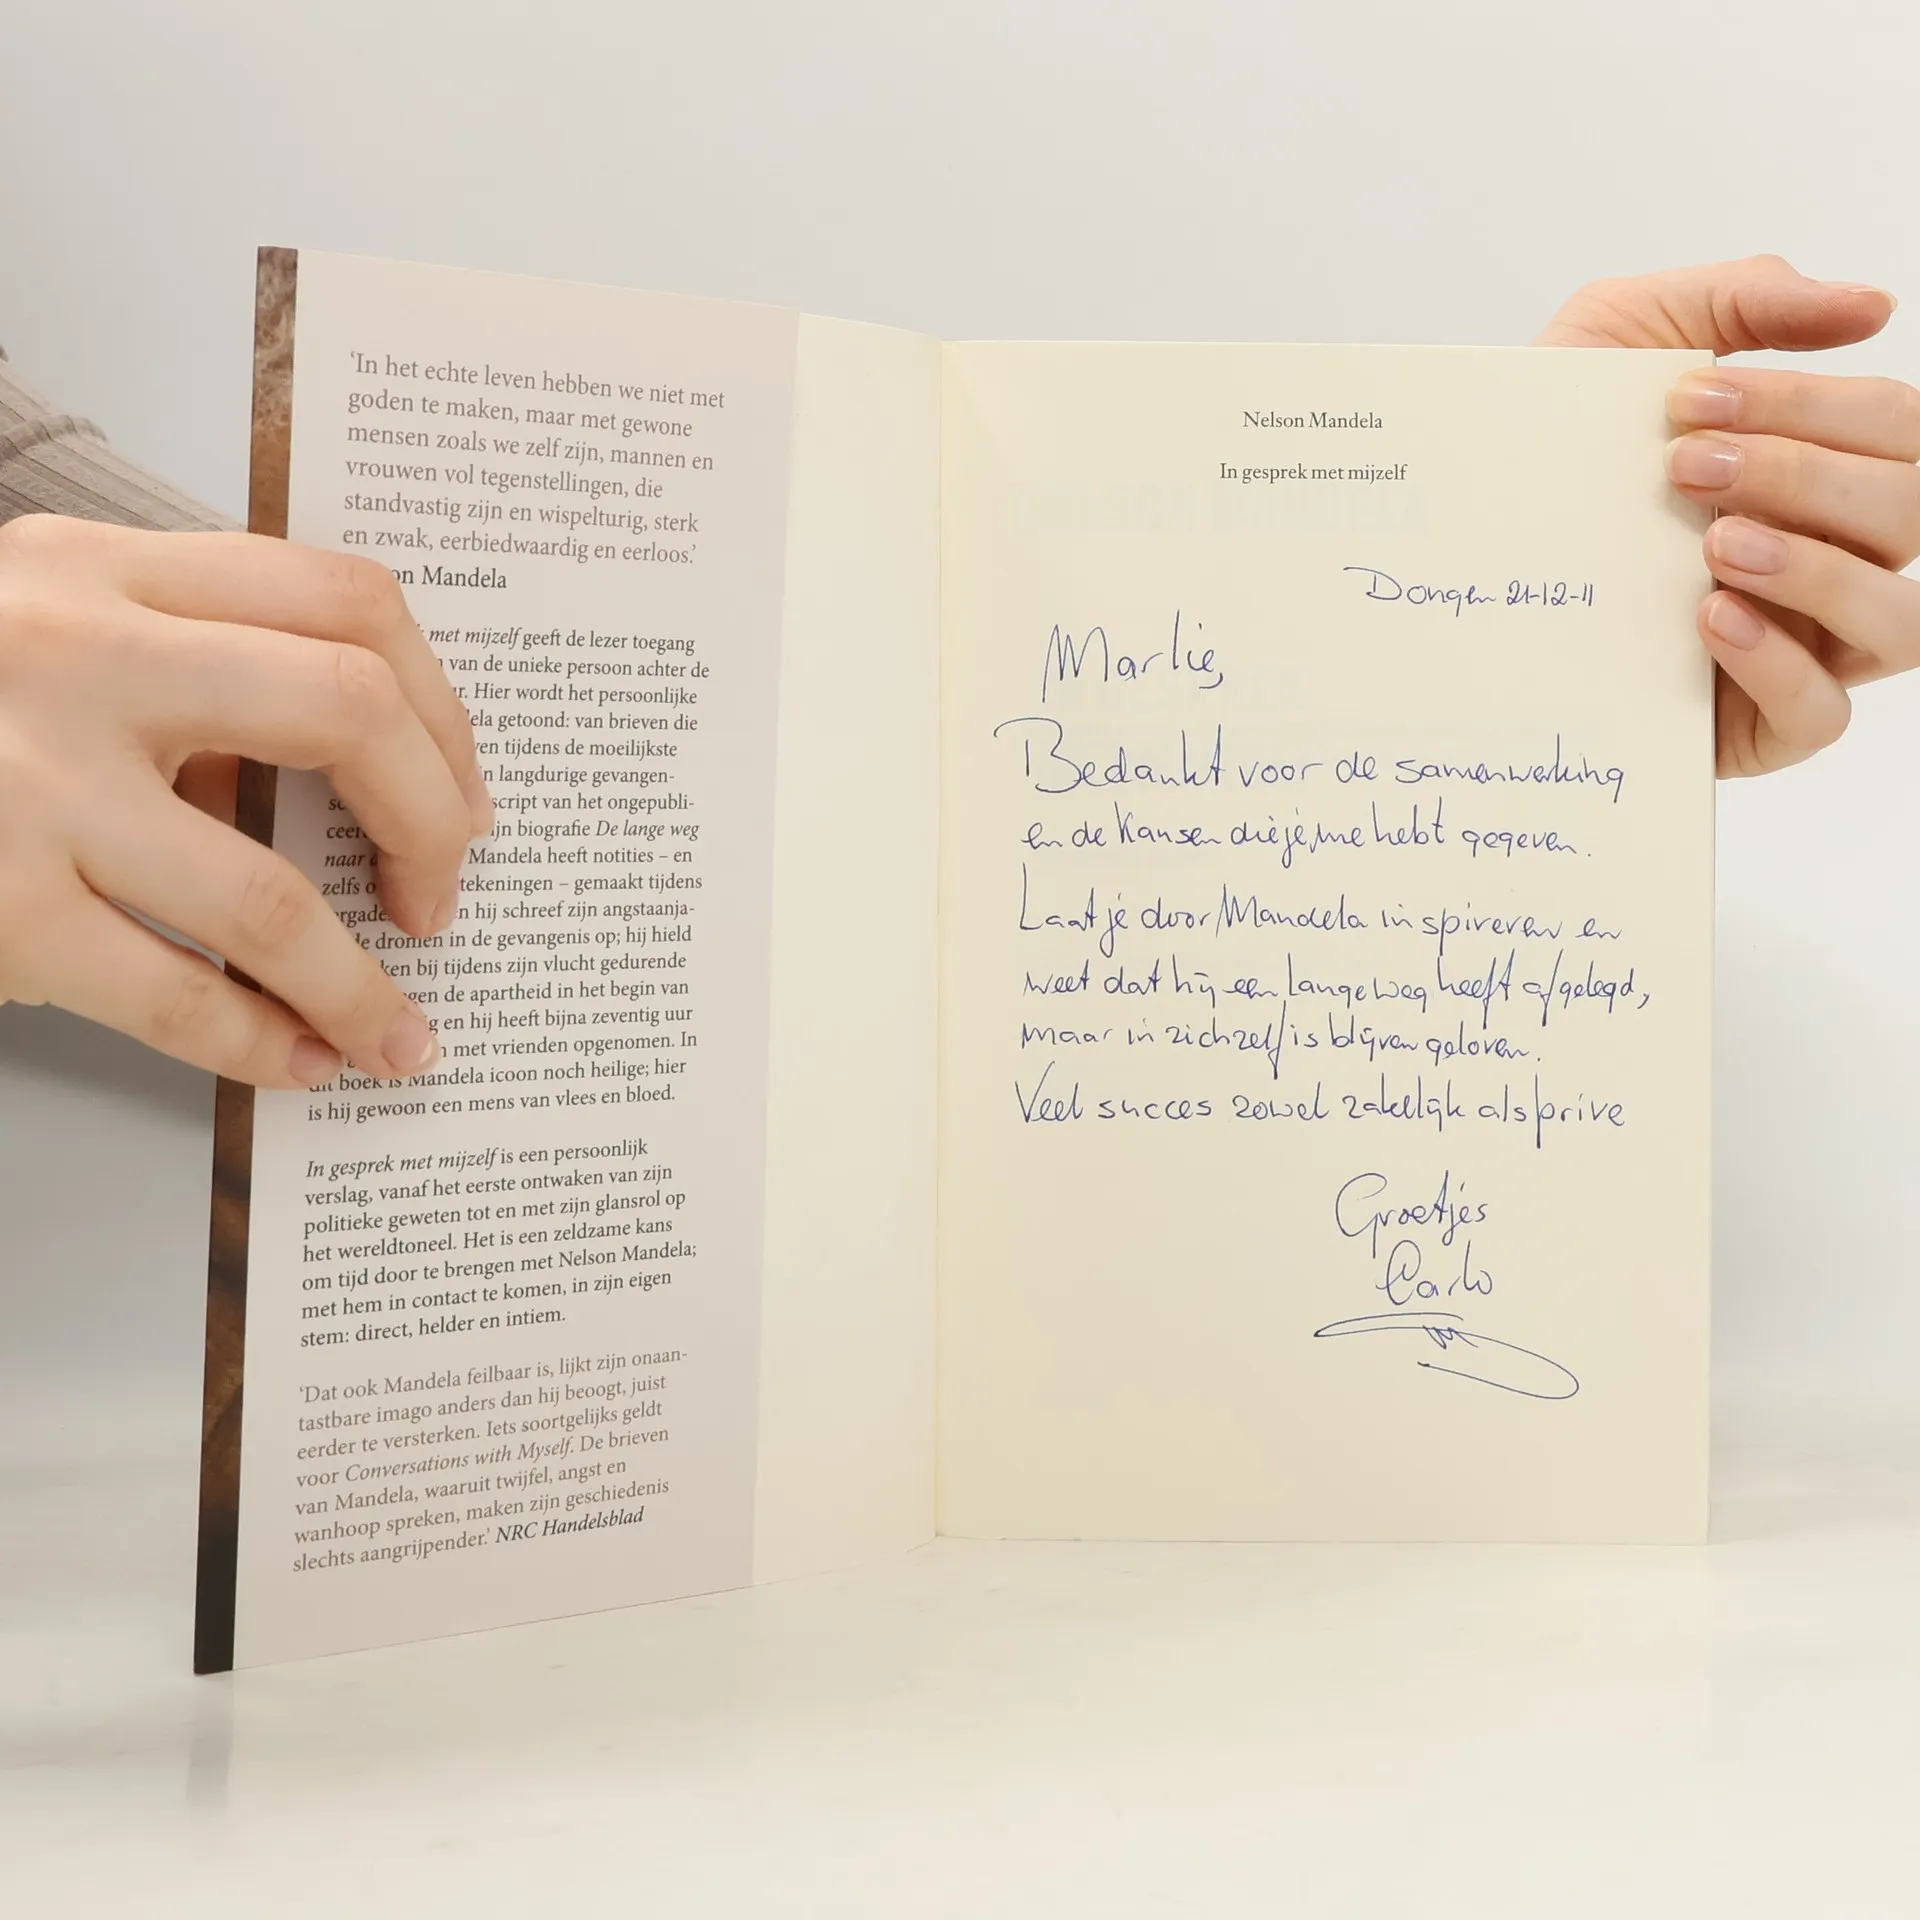 'In het echte leven hebben we niet met
goden te maken, maar met gewone
mensen zoals we zelf zijn, mannen en
vrouwen vol tegenstellingen, die
standvastig zijn en wispelturig, sterk
en zwak, eerbiedwaardig en eerloos.'
on Mandela
met mijzelf geeft de lezer toegang
van de unieke persoon achter de
Hier wordt het persoonlijke
getoond: van brieven die
tijdens de moeilijkste
langdurige gevangen-
script van het ongepubli-
biografie De lange weg
naar Mandela heeft notities – en
zelfs tekeningen – gemaakt tijdens
hij schreef zijn angstaanja-
dromen in de gevangenis op; hij hield
bij tijdens zijn vlucht gedurende
de apartheid in het begin van
en hij heeft bijna zeventig uur
met vrienden opgenomen. In
dit boek is Mandela icoon noch heilige; hier
is hij gewoon een mens van vlees en bloed.
In gesprek met mijzelf is een persoonlijk
verslag, vanaf het eerste ontwaken van zijn
politieke geweten tot en met zijn glansrol op
het wereldtoneel. Het is een zeldzame kans
om tijd door te brengen met Nelson Mandela;
met hem in contact te komen, in zijn eigen
stem: direct, helder en intiem.
'Dat ook Mandela feilbaar is, lijkt zijn onaan-
tastbare imago anders dan hij beoogt, juist
eerder te versterken. Iets soortgelijks geldt
voor Conversations with Myself. De brieven
van Mandela, waaruit twijfel, angst en
wanhoop spreken, maken zijn geschiedenis
slechts aangrijpender.' NRC Handelsblad
Nelson Mandela
In gesprek met mijzelf
Dongen 21-12-11
Marlie,
Bedankt voor de samenwerking
en de kansen die je me hebt gegeven.
Laat je door Mandela inspireren en
weet dat hij een lange weg heeft afgelegd,
maar in zichzelf is blijven geloven.
Veel succes zowel zakelijk als prive
Groetjes
Carlo